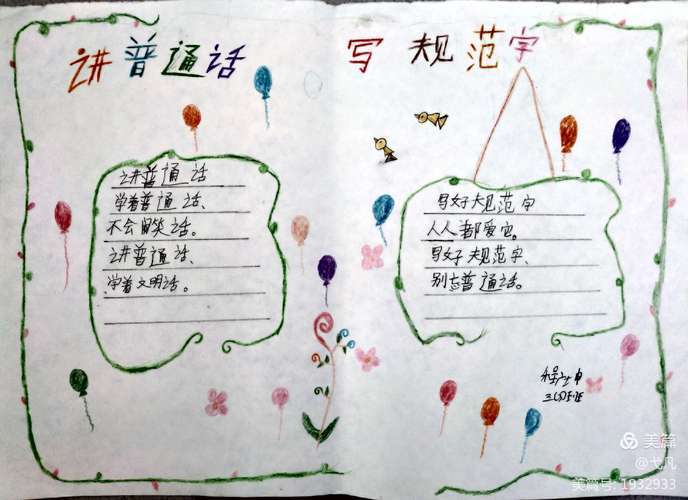 讲普通话 写规范字
讲普通话
学着普通话、
不会留笑话。
讲普通话、
学着文明话。
写好规范字
人人都爱它。
写好规范字、
别忘普通话。
美篇
@弋凡
美篇号: 1932933